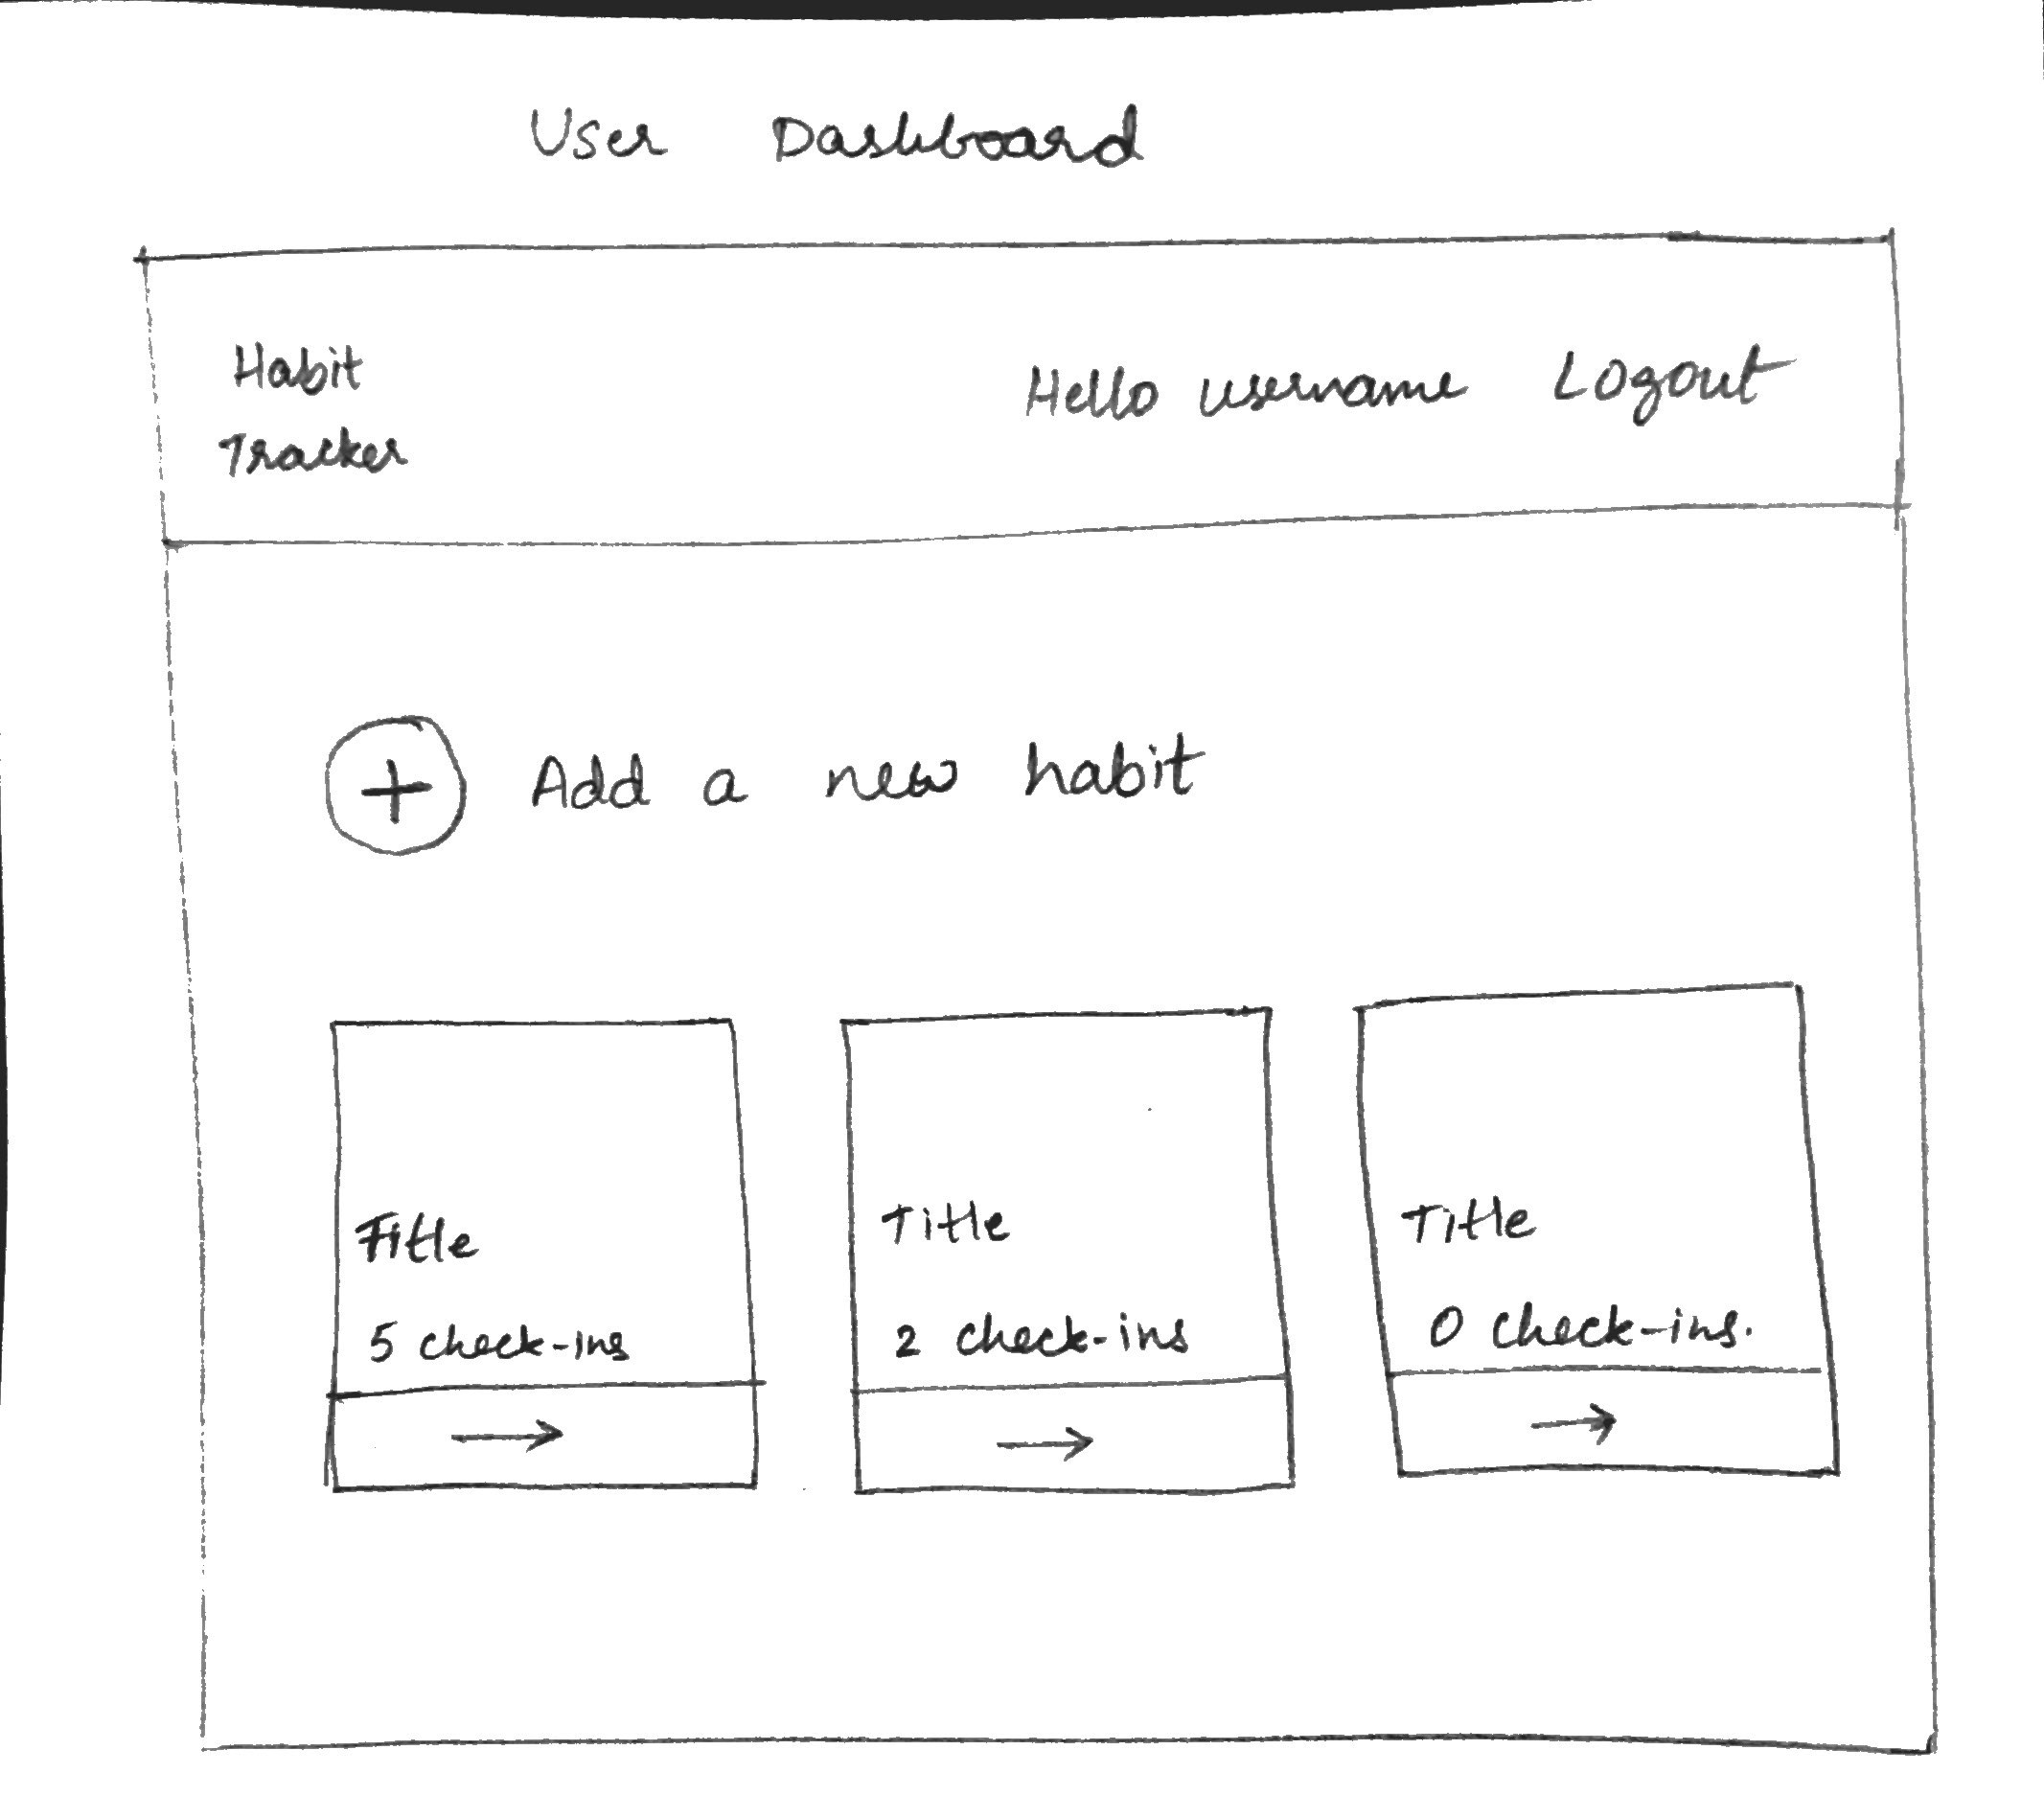 User Dashboard
Habit
Tracker
Hello username Logout
+ Add a new habit
Title
5 check-ins
→
Title
2 check-ins
→
Title
0 check-ins.
→